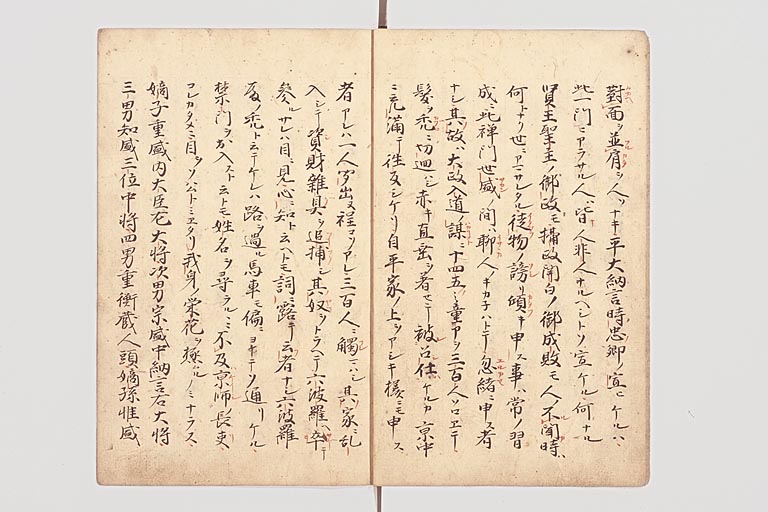 對面ヲ並肩ヲ人ソナキ平大納言時忠卿ノ宣ヒケルハ
此一門ニアラサル人ハ皆人非人ナルヘシトソ宣ケル何ナル
賢王聖主ノ御政モ攝政関白ノ御成敗モ人不聞時ハ
何トナク世ニアマサレタル徒物ノ謗リ傾キ申ス事ハ常ノ習
成ニ此禅門世盛ノ間ハ聊人ノキカヌハトテモ忽緒ニ申ス者
ナシ其故ハ大政入道ノ謀ニ十四五ノ童ヲ三百人ソロエテ
髪ヲ禿ニ切廻シ赤キ直垂ヲ著セテ被召仕ケルカ京中
ニ充満テ往反シケリ自平家ノ上ヲアシキ様ニモ申ス
者アレハ一人聞出ス程コソアレ三百人ニ觸マハシ其家ニ乱
入シテ資財雜具ヲ追捕シ其奴ヲトラヘテ六波羅ヘ率テ
參ルサレハ目ニ見心ニ知ト云ヘトモ詞ニ露ス者ナシ六波羅
殿ノ禿トニテケレハ路ヲ過ル馬車モ偏ニヨキテソ通リケル
禁門ヲ出入スト云トモ姓名ヲ尋ラルヽニ不及京師長吏
コレカタメニ目ヲソハムトミエタリ我身ノ栄花ヲ極ルノミナラス
嫡子重盛内大臣左大将次男宗盛中納言右大将
三男知盛三位中将四男重衡蔵人頭嫡孫惟盛